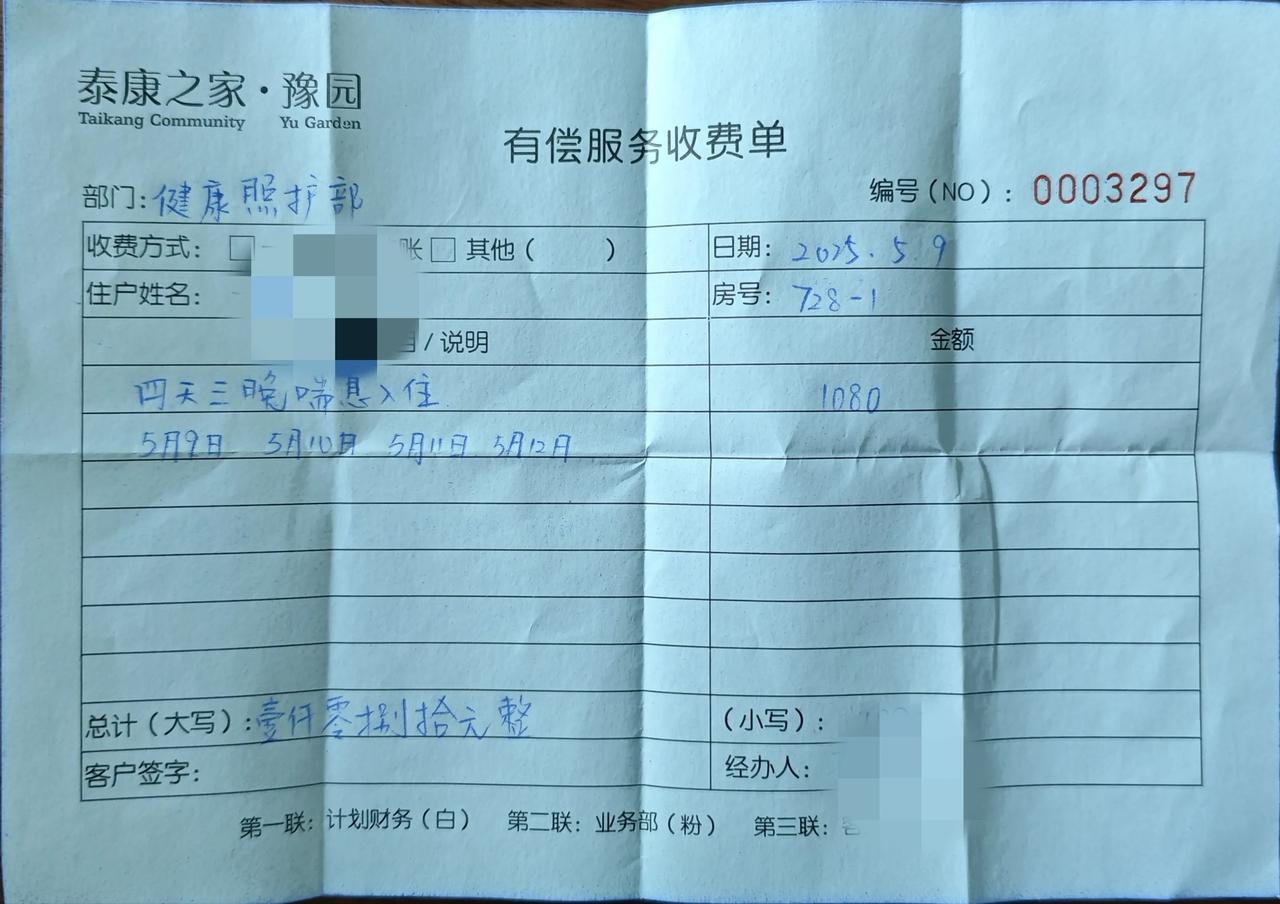 泰康之家·豫园
Taikang Community Yu Garden
有偿服务收费单
部门:健康照护部
编号(NO):0003297
收费方式:□ 账□其他( )
日期:2025.5.9
住户姓名:
房号:728-1
/说明
金额
四天三晚喘息入住
1080
5月9日 5月10日 5月11日 5月12日
总计(大写):壹仟零捌拾元整
(小写):
客户签字:
经办人:
第一联:计划财务(白) 第二联:业务部(粉) 第三联: